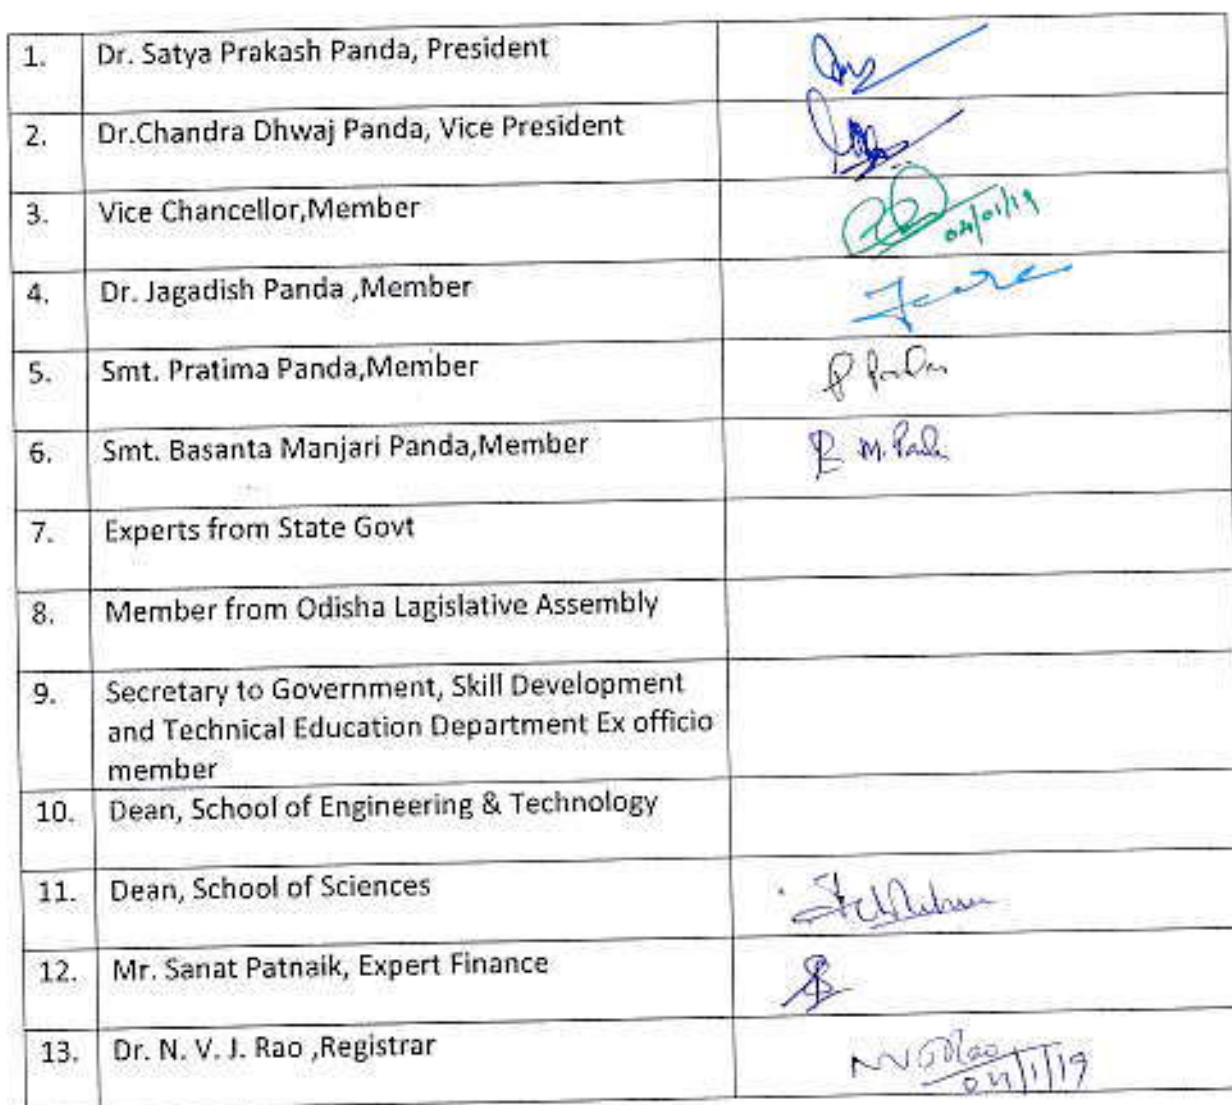 1. Dr. Satya Prakash Panda, President
2. Dr.Chandra Dhwaj Panda, Vice President
3. Vice Chancellor,Member
04/01/19
4. Dr. Jagadish Panda ,Member
5. Smt. Pratima Panda,Member
P Panda
6. Smt. Basanta Manjari Panda,Member
B M. Panda
7. Experts from State Govt
8. Member from Odisha Lagislative Assembly
9. Secretary to Government, Skill Development
and Technical Education Department Ex officio
member
10. Dean, School of Engineering & Technology
11. Dean, School of Sciences
12. Mr. Sanat Patnaik, Expert Finance
13. Dr. N. V. J. Rao ,Registrar
NVJRao
04/1/19